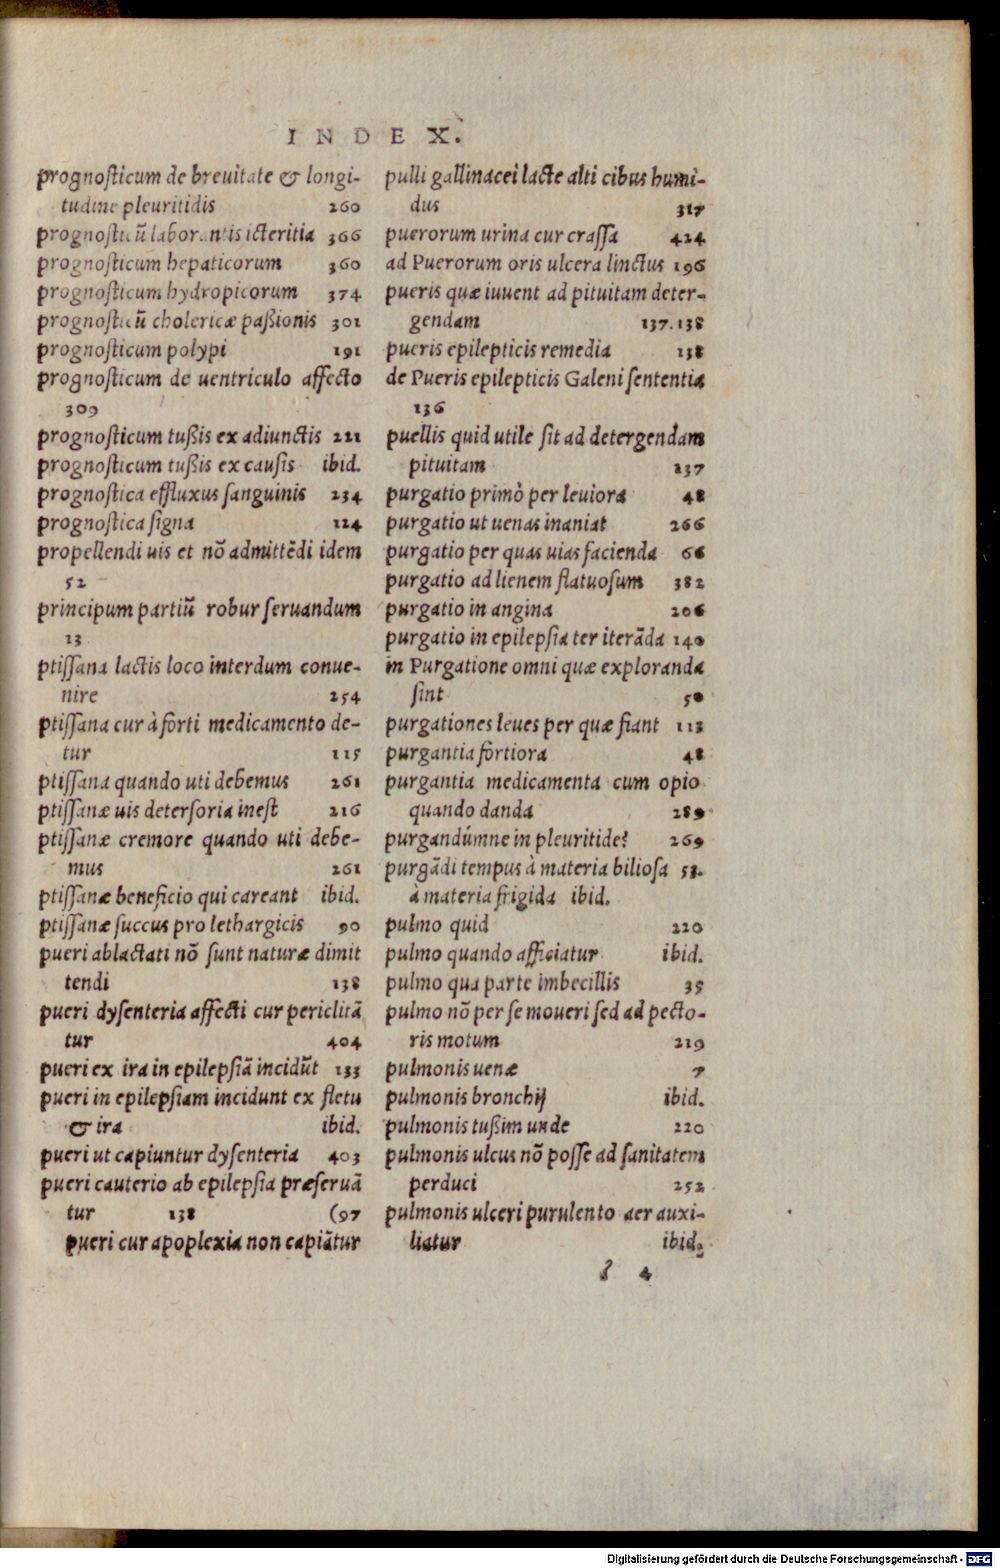 INDEX.
prognoſticum de breuitate & longi-
tudine pleuritidis 260
prognoſticũ laborantis icteritia 366
prognoſticum hepaticorum 360
prognoſticum hydropicorum 374
prognoſticũ cholericæ paßionis 301
prognoſticum polypi 191
prognoſticum de uentriculo affecto
309
prognoſticum tußis ex adiunctis 221
prognoſticum tußis ex cauſis ibid.
prognoſtica effluxus ſanguinis 234
prognoſtica ſigna 124
propellendi uis et nõ admittẽdi idem
52
principum partiũ robur ſeruandum
13
ptiſſana lactis loco interdum conue-
nire 254
ptiſſana cur à forti medicamento de-
tur 115
ptiſſana quando uti debemus 261
ptiſſanæ uis deterſoria ineſt 216
ptiſſanæ cremore quando uti debe-
mus 261
ptiſſanæ beneficio qui careant ibid.
ptiſſanæ ſuccus pro lethargicis 90
pueri ablactati nõ ſunt naturæ dimit
tendi 138
pueri dyſenteria affecti cur periclitã
tur 404
pueri ex ira in epilepſiã incidũt 133
pueri in epilepſiam incidunt ex fletu
& ira ibid.
pueri ut capiuntur dyſenteria 403
pueri cauterio ab epilepſia præſeruã
tur 138 (97
pueri cur apoplexia non capiãtur
pulli gallinacei lacte alti cibus humi-
dus 317
puerorum urina cur craſſa 424
ad Puerorum oris ulcera linctus 196
pueris quæ iuuent ad pituitam deter-
gendam 137.138
pueris epilepticis remedia 138
de Pueris epilepticis Galeni ſententia
136
puellis quid utile ſit ad detergendam
pituitam 137
purgatio primò per leuiora 48
purgatio ut uenas inaniat 266
purgatio per quas uias facienda 66
purgatio ad lienem flatuoſum 382
purgatio in angina 206
purgatio in epilepſia ter iterãda 140
in Purgatione omni quæ exploranda
ſint 50
purgationes leues per quæ fiant 113
purgantia fortiora 48
purgantia medicamenta cum opio
quando danda 289
purgandúmne in pleuritide? 269
purgãdi tempus à materia bilioſa 53.
à materia frigida ibid.
pulmo quid 220
pulmo quando afficiatur ibid.
pulmo qua parte imbecillis 35
pulmo nõ per ſe moueri ſed ad pecto-
ris motum 219
pulmonis uenæ 7
pulmonis bronchij ibid.
pulmonis tußim unde 220
pulmonis ulcus nõ poſſe ad ſanitatem
perduci 252
pulmonis ulceri purulento aer auxi-
liatur ibid.
4
Digitalisierung gefördert durch die Deutsche Forschungsgemeinschaft - DFG